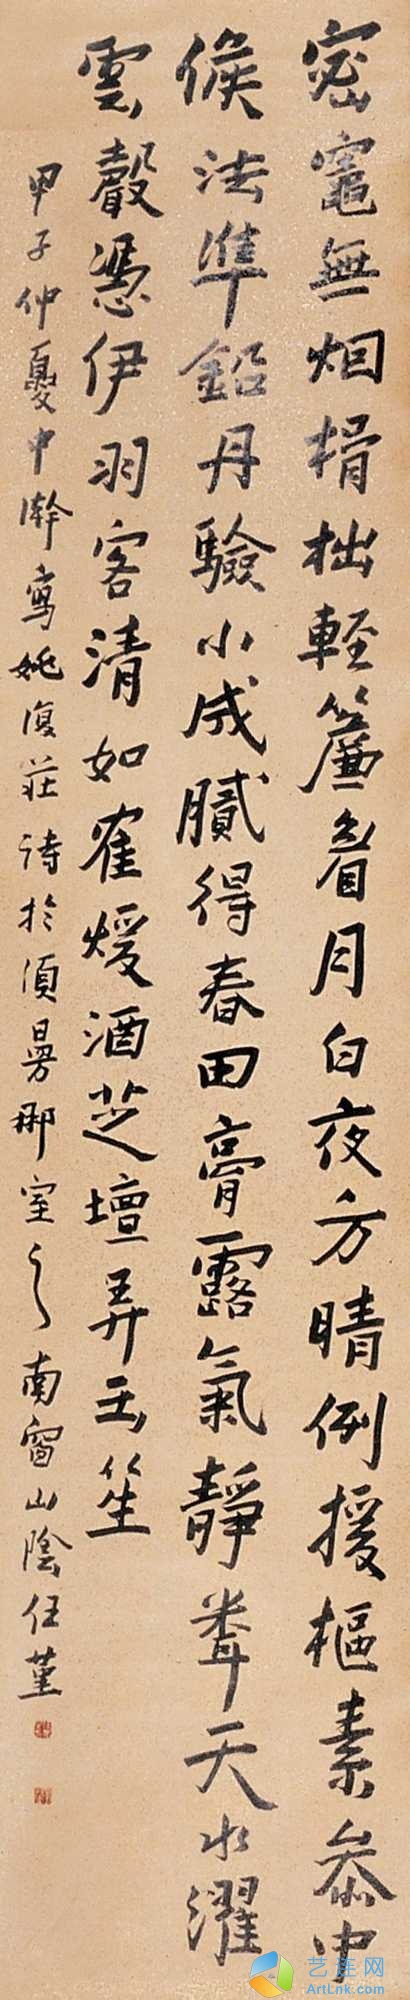 密竈無烟榾柮輕簾看月白夜方晴例援樞素叅中
候法準鉛丹驗小成膩得春田膏露氣靜聾天水濯
雲聲憑伊羽客清如雀煖酒芝壇弄玉笙
甲子仲夏中澣寫姚復莊詩於須曼那室之南窗山陰任堇
艺连网
ArtLnk.com